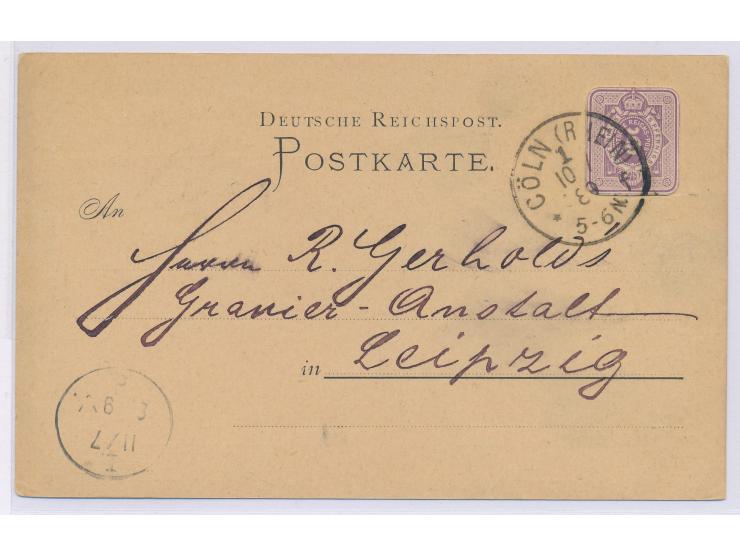 DEUTSCHE REICHSPOST.
POSTKARTE.
An
Herrn R. Gerholds
Gravier-Anstalt
in Leipzig
CÖLN (RHEIN)
1
10
5-6N.